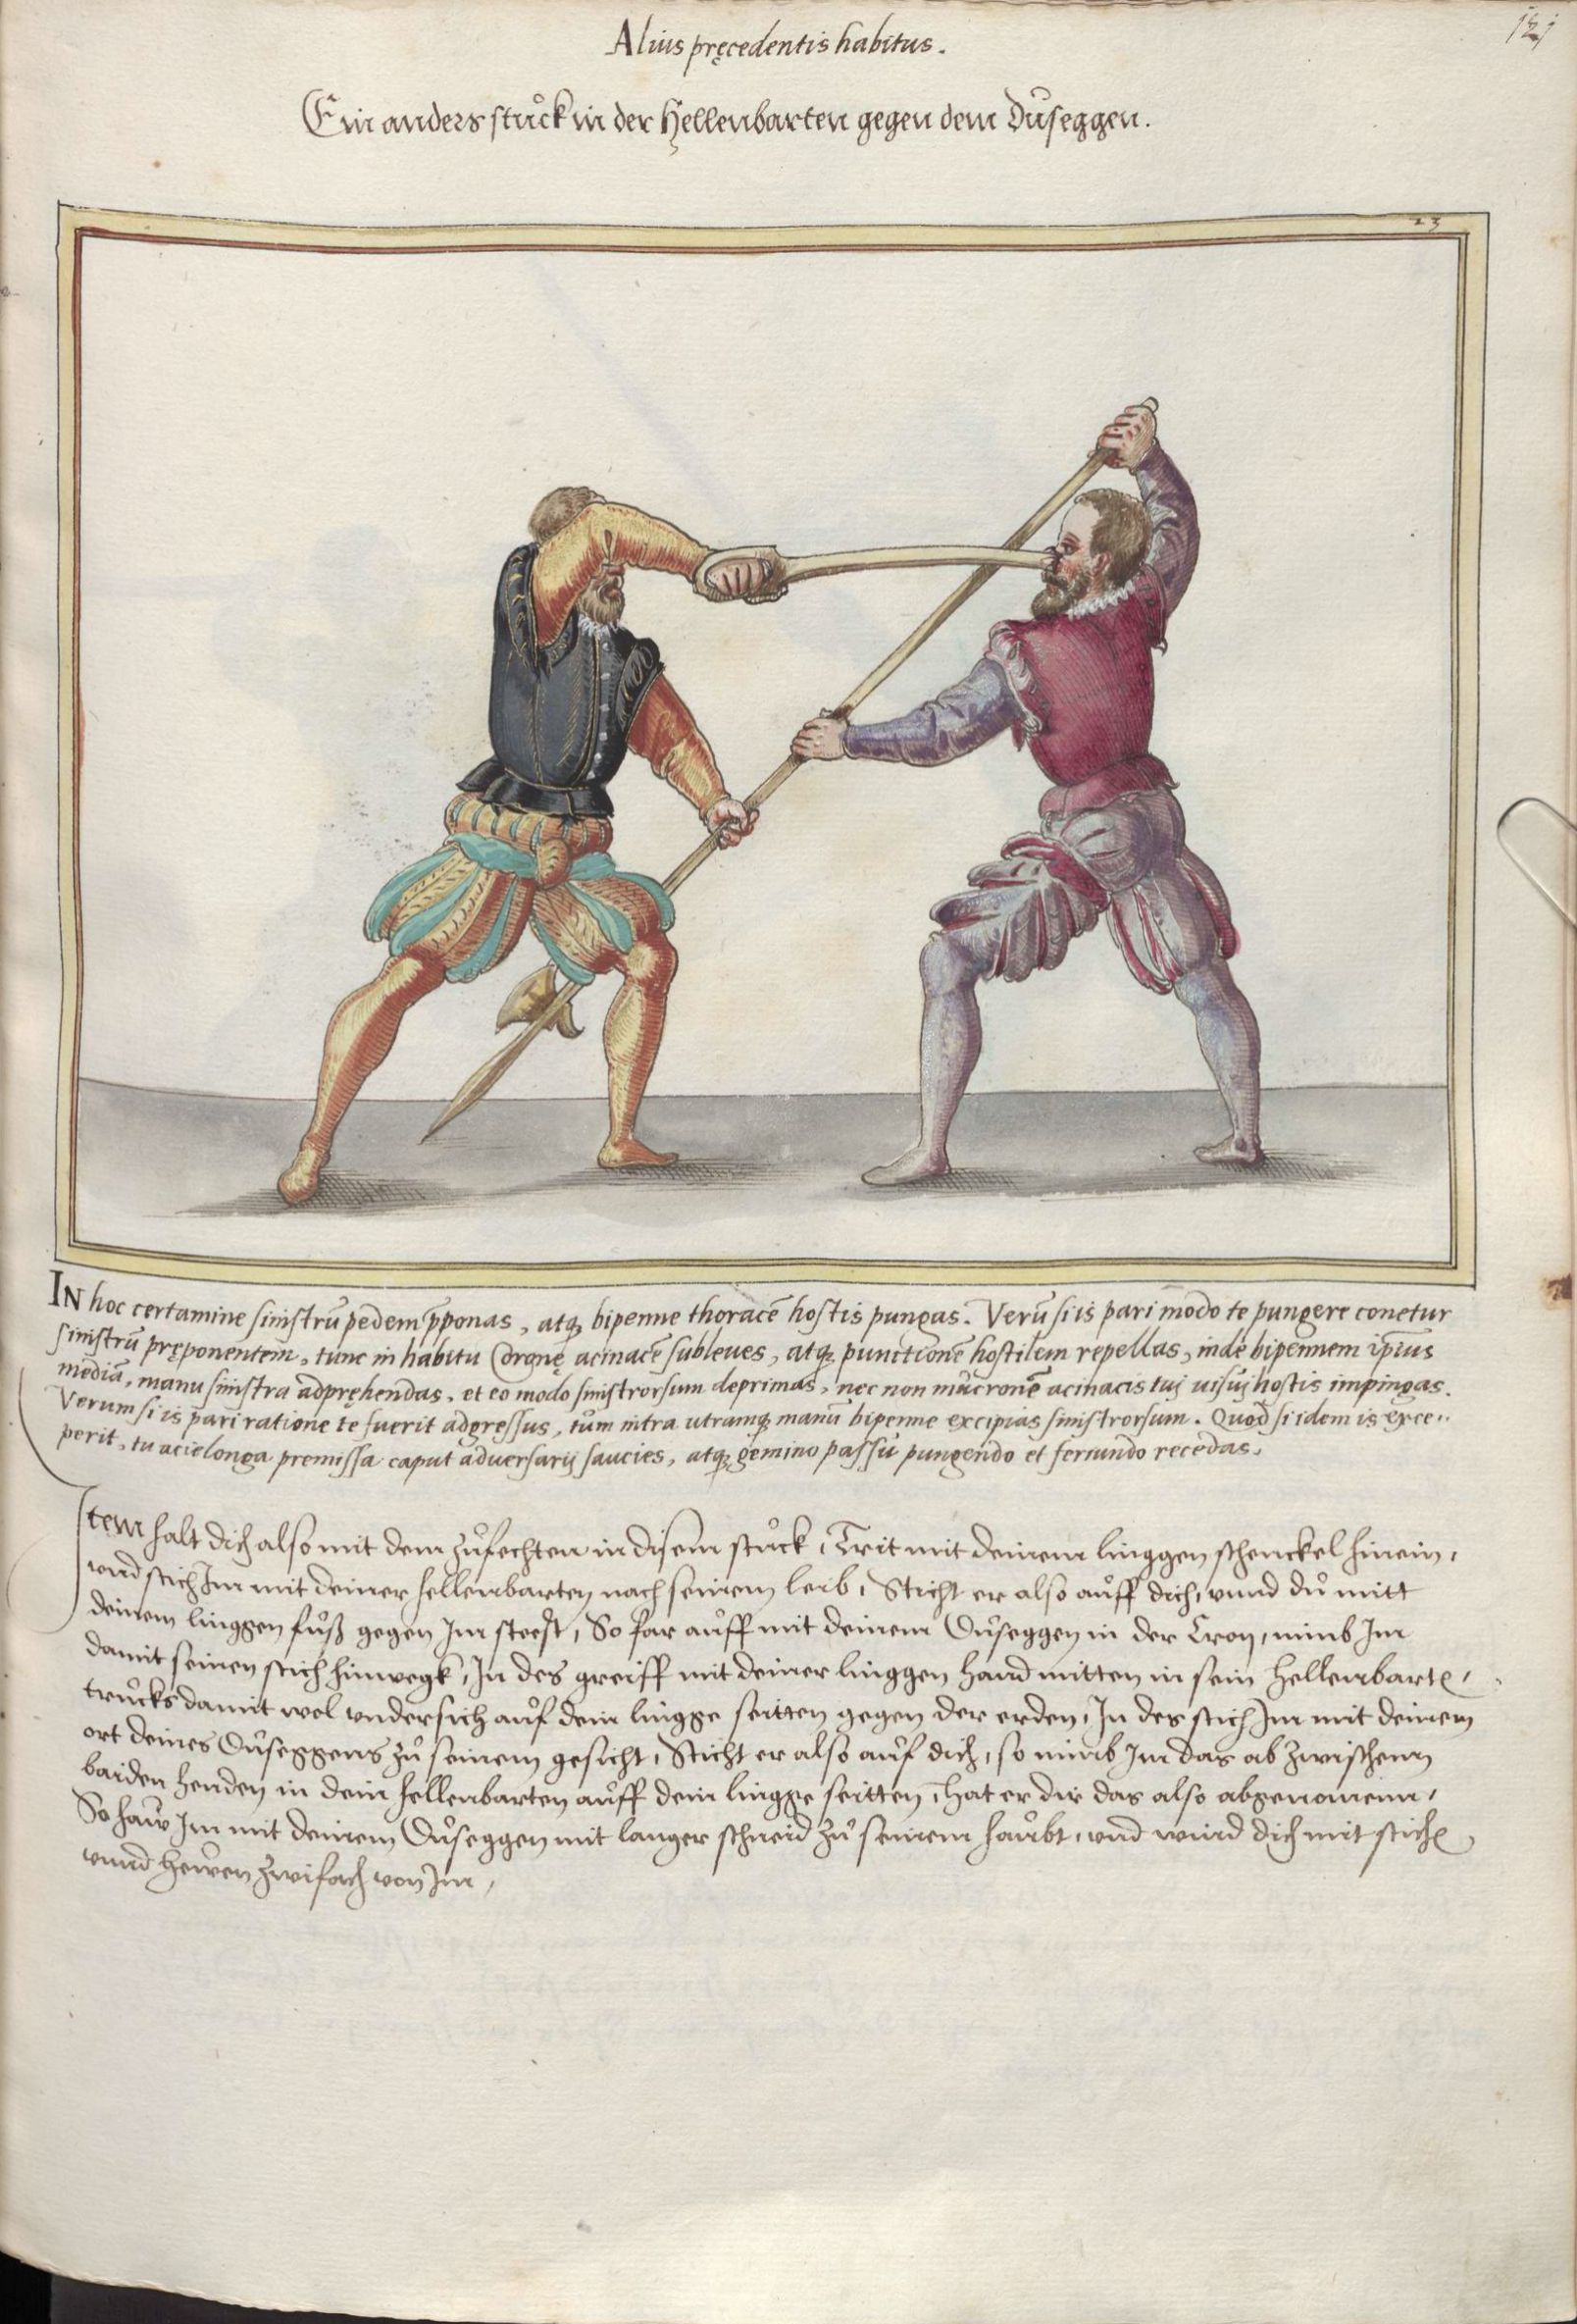 121
Alius pręcedentis habitus.
Ein anders stůck in der Hellenbarten gegen dem Duseggen.
23
IN hoc certamine sinistrū pedem p̄ponas, atq̨ bipenne thoracē hostis pungas. Verū si is pari modo te pungere conetur
sinistrū pręponentem, tunc in habitu Coronę acinacē subleues, atq̨ punctionē hostilem repellas, inde bipennem ip̄ius
mediā, manu sinistra adpręhendas, et eo modo sinistrorsum deprimas, nec non mucronē acinacis tuj uisuj hostis impingas.
Verum si is pari ratione te fuerit adgressus, tum intra utramq̨ manū bipenne excipias sinistrorsum. Quod si idem is exce„
perit, tu acie longa premissa caput aduersarij saucies, atq̨ gemino passu pungendo et feriundo recedas.
Item halt dich also mit dem zůfechten in disem stůck, Trit mit deinem linggen schenckel hinein,
vnd stich Im mit deiner hellenbarten nach seinem leib, Sticht er also auff dich, vnnd du mitt
deinem linggen fůß gegen Im steest, So far auff mit deinem Duseggen in der Cron, nimb Im
damit seinen stich hinwegk, In des greiff mit deiner linggen hand mitten in sein hellenbartē,
trucks damit wol vndersich auf dein lingge seitten gegen der erden, In des stich Im mit deinem
ort deines Duseggens zů seinem gesicht, Sticht er also auf dich, so nimb Im das ab zwischenn
baiden henden in dein hellenbarten auff dein lingge seitten, hat er dir das also abgenomenn,
So haw Im mit deinem Duseggen mit langer schneid zů seinem haubt, vnd wind dich mit stichē
vnnd hewen zwifach von Im,